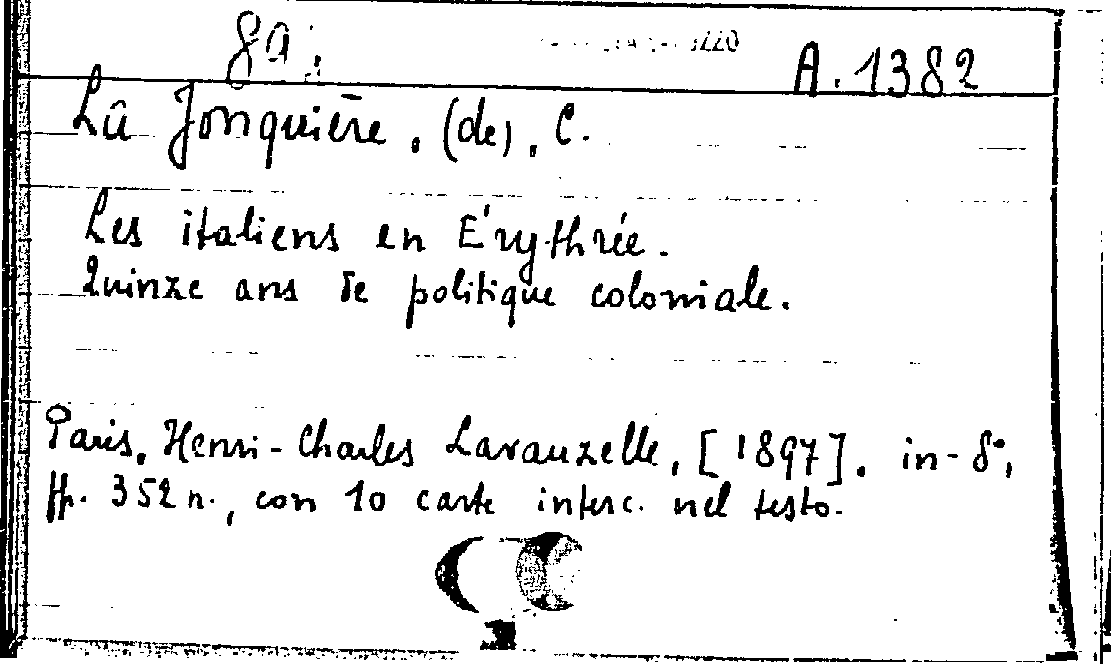 8a.
A. 1382
La Jonquière, (de), C.
Les italiens en Érythrée.
Quinze ans de politique coloniale.
Paris, Henri-Charles Lavauzelle, [1897]. in-8°,
pp. 352 n., con 10 carte interc. nel testo.